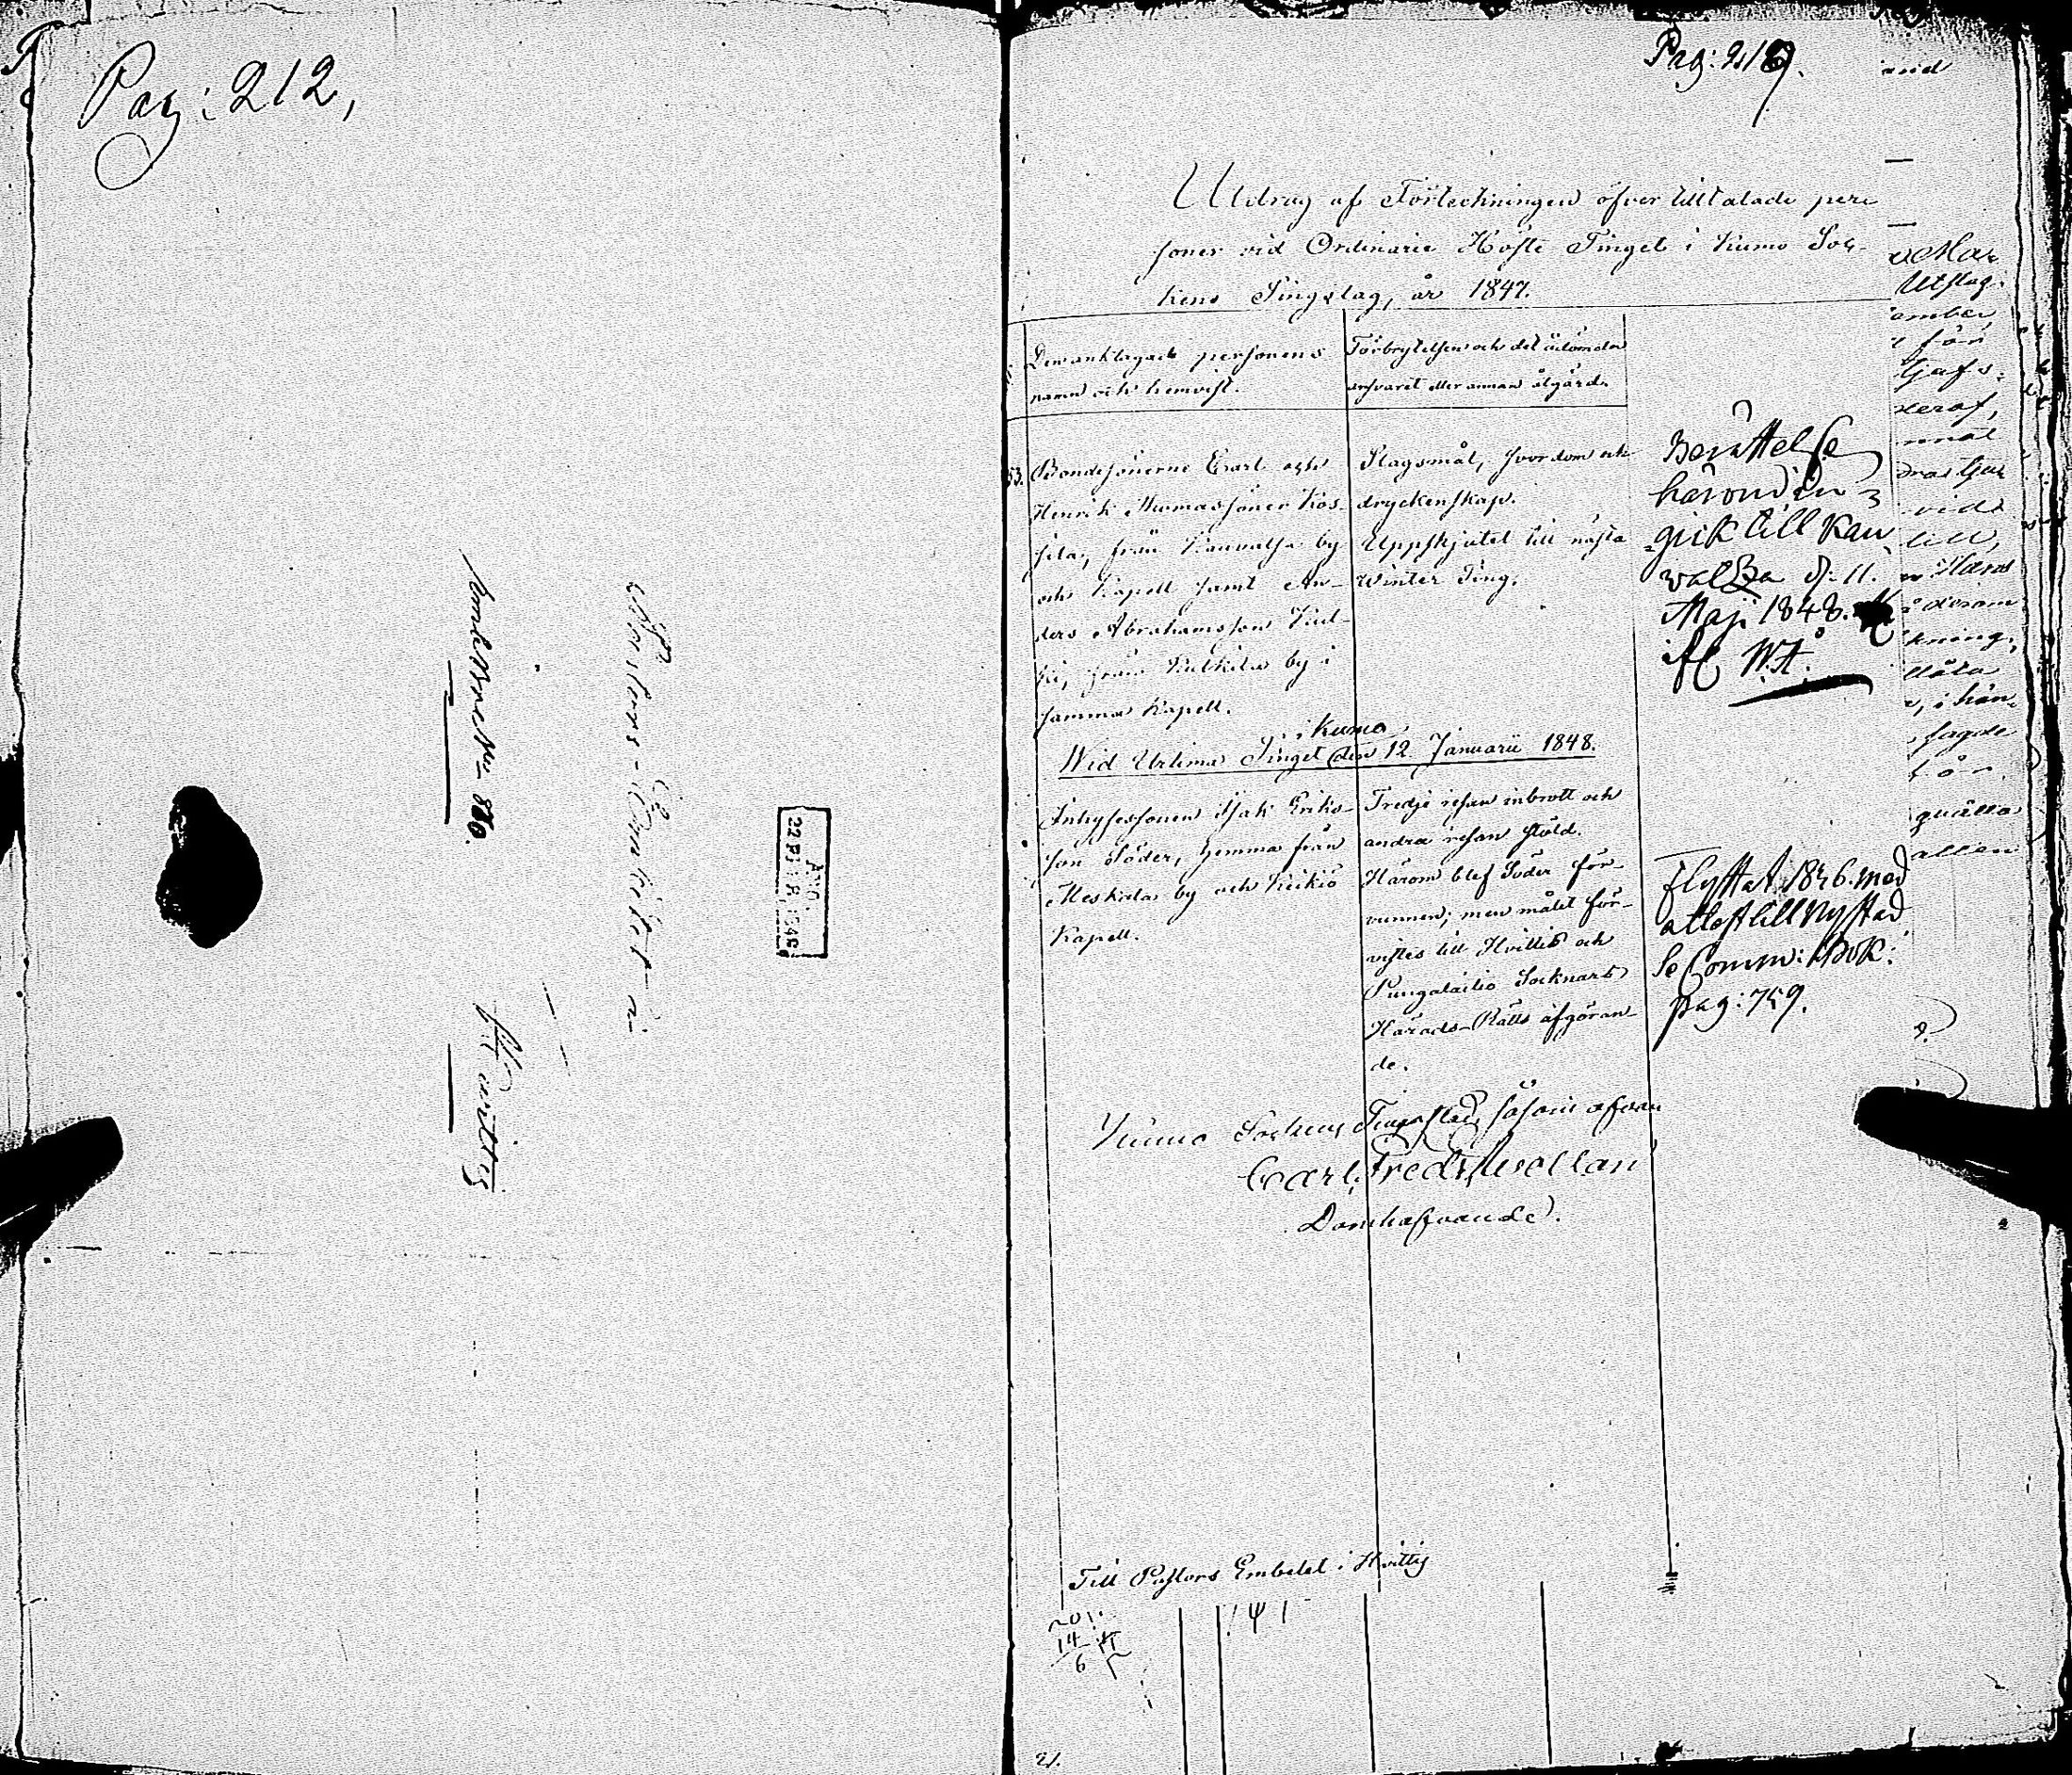 Pag: 212,
Pastors-Embetet i
Hvittis
Pag: 219.
Utdrag af Förteckningen öfver tilltalade per-
soner vid Ordinarie Höste Tinget i Kumo Sok-
kens Tingslag, år 1847.
Den anklagade personens
namn och hemvist.
Förbrytelsen och det ådömda
ansvaret eller annan åtgärd.
53. Bondesönerne Enart och
Henrik Thomassöner Kos-
sila, från Kauvatsa by
och Kapell samt An-
ders Abrahamsson Kul-
ki, från Kulkila by i
samma Kapell.
Slagsmål, svordom och
dryckenskap.
Uppskjutet till nästa
Winter Ting.
Berättelse
härom in-
gick till Kau-
valsa d. 11.
Maji 1848.
Wid Urtima Tinget i Kumo den 12 Januarii 1848.
Inhysessonen Isak Eriks-
son Söder, hemma från
Meskala by och Keikiö
Kapell.
Tredje resan inbrott och
andra resan stöld.
Härom blef Söder för-
vunnen; men målet för-
vistes till Hvittis och
Pungalaitio Socknars
Härads-Rätts afgöran-
de.
Flyttat 1846 med
attest till Nystad
Se Comm: Bok.
pag: 759.
Kumo Sockens Tingsstad, såsom ofvan
Carl Fredr.
Domhafvande.
Till Pastors Embetet i Hvittis
21.